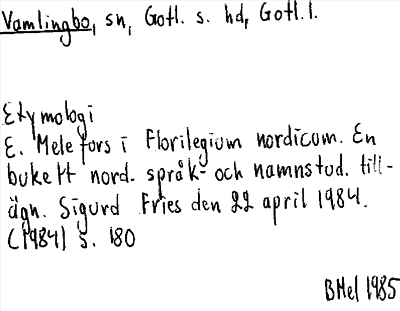 Vamlingbo, sn, Gotl. s. hd, Gotl. l.
Etymologi
E. Melefors i Florilegium nordicum. En
bukett nord. språk- och namnstud. till-
ägn. Sigurd Fries den 22 april 1984.
(1984) s. 180
BMel 1985